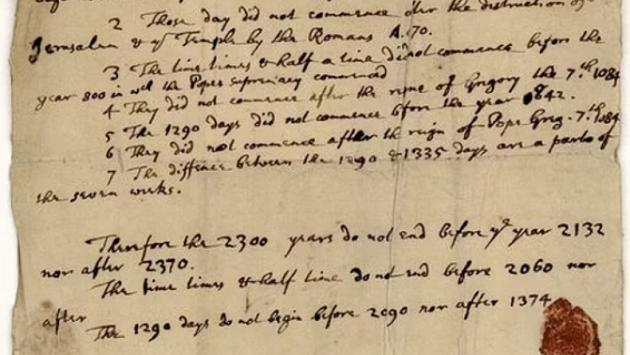 2 Those day did not commence after the distruction of
Jerusalem & ye Temple by the Romans A. 70.
3 The time times & half a time did not commence before the
year 800 in wch the Popes supremacy commenced
4 They did not commence after the reigne of Gregory the 7.th 1084
5 The 1290 days did not commence before the year 842.
6 They did not commence after the reign of Pope Greg. 7.th 1084
7 The diffence between the 1290 & 1335 days are a parts of
the seven weeks.
Therefore the 2300 years do not end before ye year 2132
nor after 2370.
The time times & half time do not end before 2060 nor
after
The 1290 days do not begin before 2090 nor after 1374